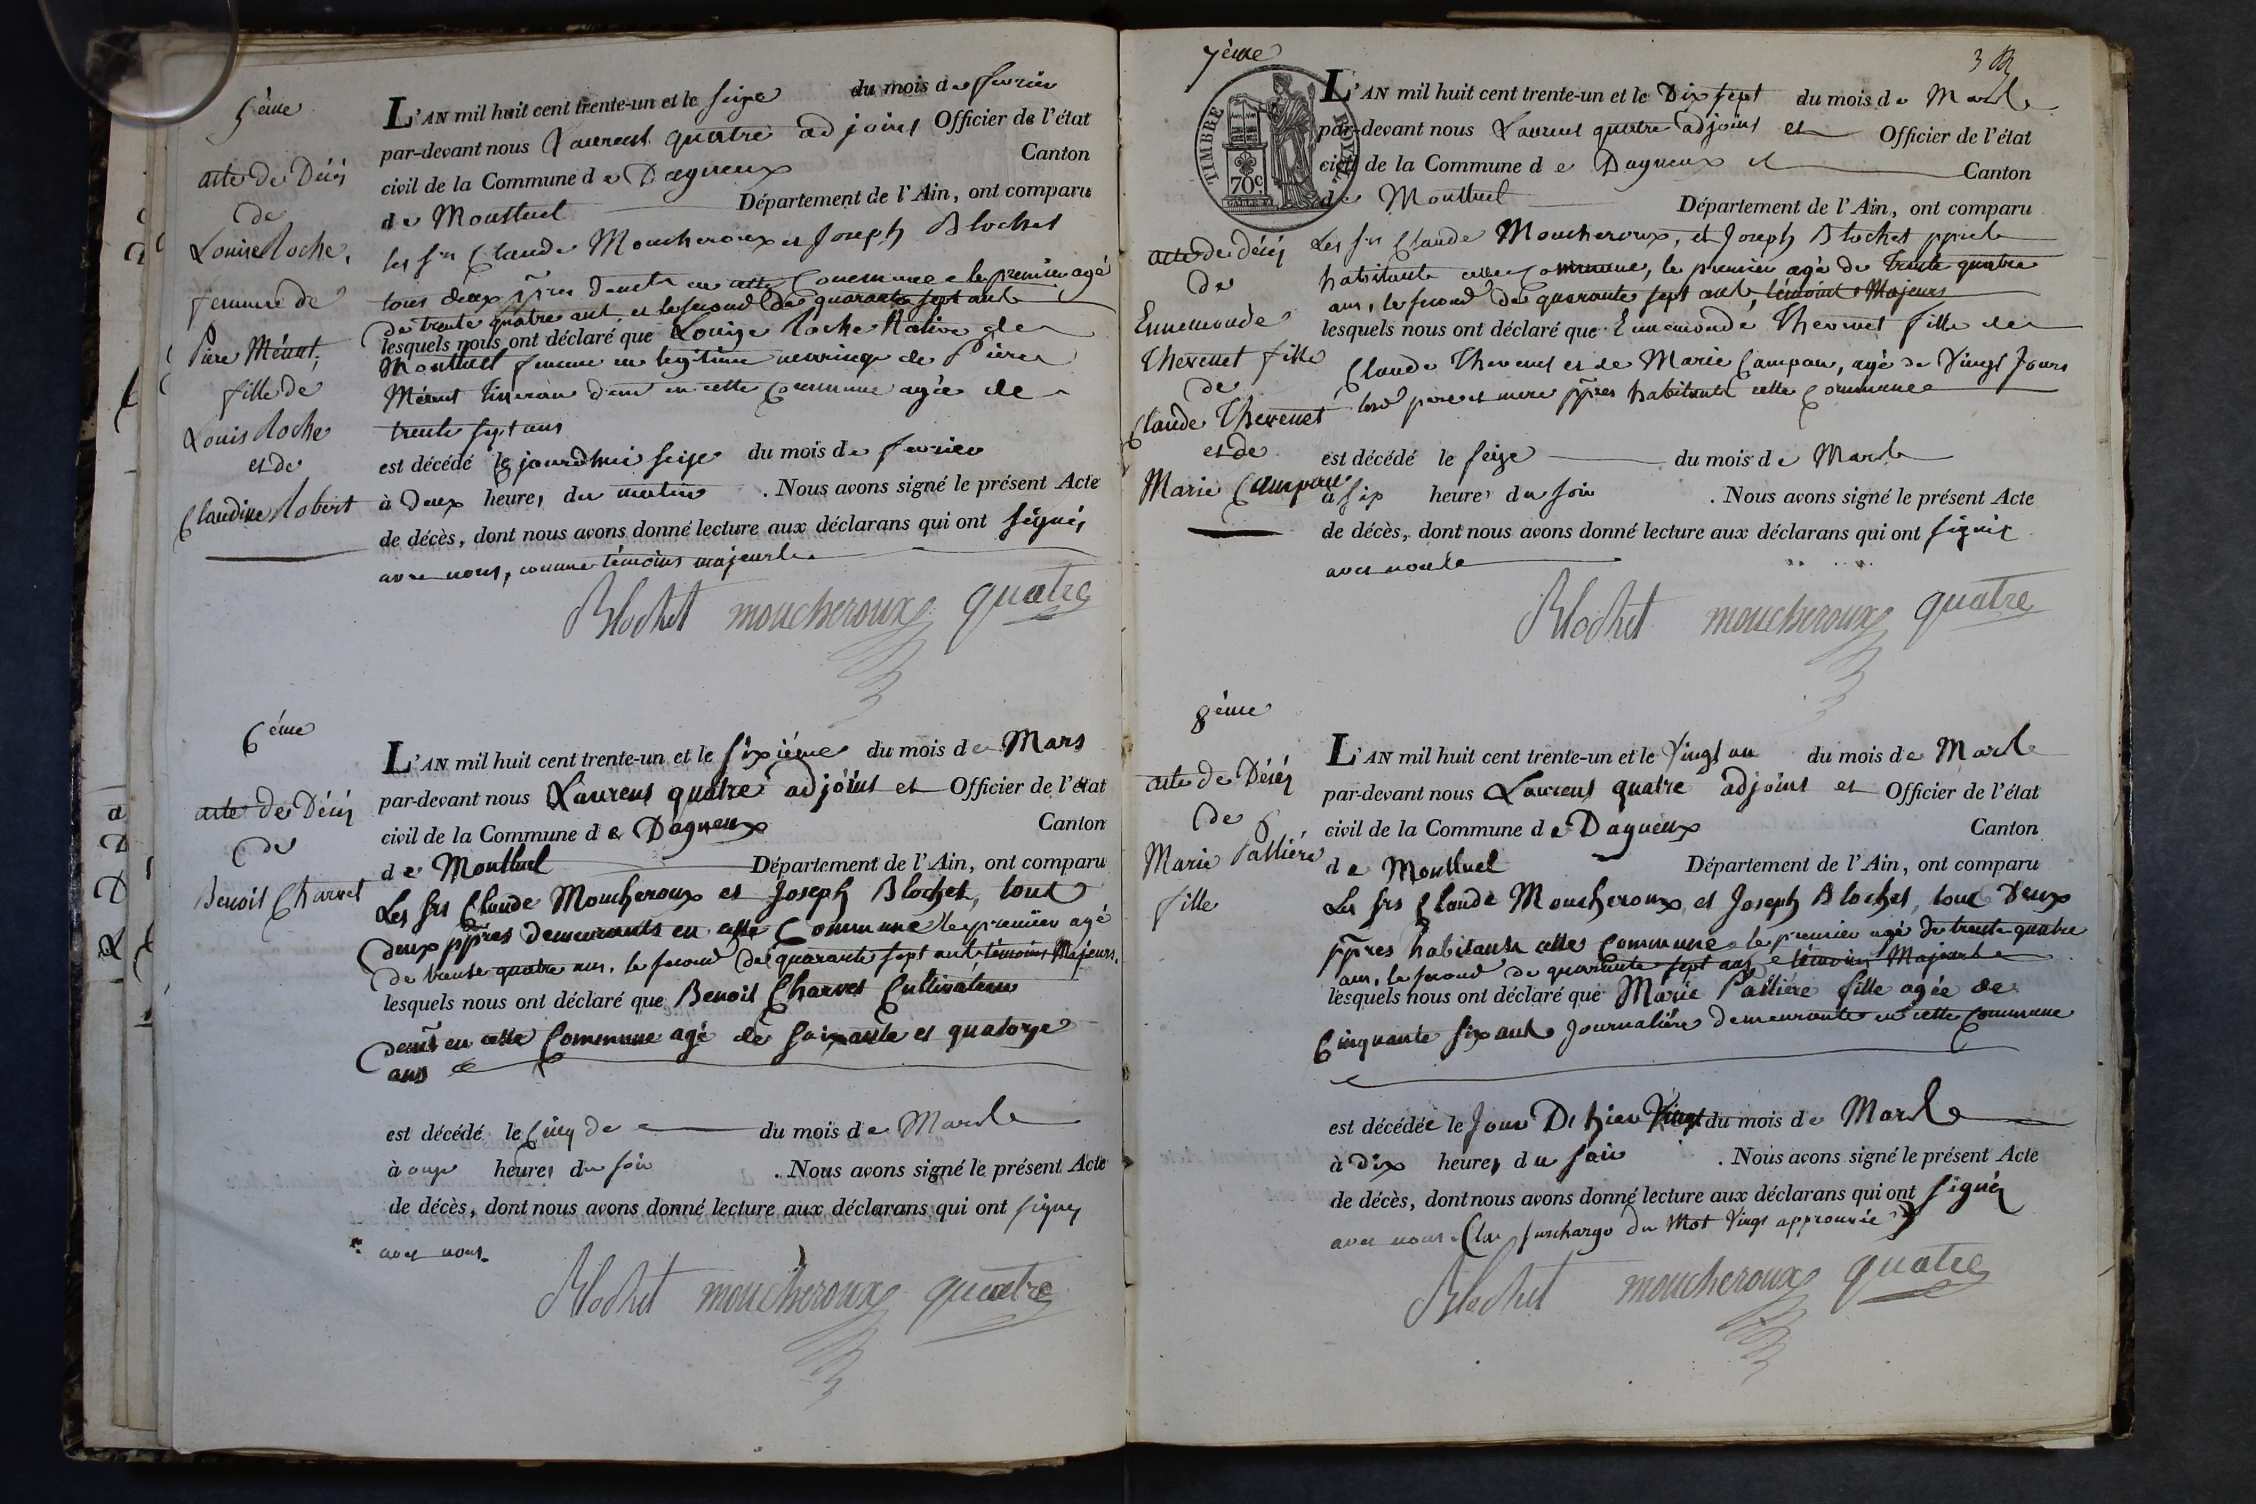 5ème
acte de Décès
de
Louise Roche,
femme de
Piere Méant,
fille de
Louis Roche
et de
Claudine Robert
L'AN mil huit cent trente-un et le seize du mois de fevrier
par-devant nous Laurent quatre adjoint Officier de l'état
civil de la Commune de Dagneux Canton
de Montluel Département de l'Ain, ont comparu
les srs Claude Moucheroux et Joseph Blochet
tous deux ppres demts en cette Commune le premier agé
de trente quatre ans et le second de quarante sept ans
lesquels nous ont déclaré que Louise Roche Native de
Montluel femme en legitime mariage de Piere
Méant tisseran demt en cette commune agée de
trente sept ans
est décédé le jourd'hui seize du mois de fevrier
à Deux heures du matin . Nous avons signé le présent Acte
de décès, dont nous avons donné lecture aux déclarans qui ont signés
avec nous, comme témoins majeurs
Blochet moucheroux quatre
6ème
acte de Décès
de
Benoit Charvet
L'AN mil huit cent trente-un et le sixième du mois de Mars
par-devant nous Laurent quatre adjoint et Officier de l'état
civil de la Commune de Dagneux Canton
de Montluel Département de l'Ain, ont comparu
Les srs Claude Moucheroux et Joseph Blochet, tous
deux ppres demeurants en cette Commune le premier agé
de trente quatre ans, le second de quarante sept ans témoins Majeurs.
lesquels nous ont déclaré que Benoit Charvet Cultivateur
demt en cette Commune agé de soixante et quatorze
ans
est décédé le Cinq de du mois de Mars
à onze heures du soir . Nous avons signé le présent Acte
de décès, dont nous avons donné lecture aux déclarans qui ont signés
avec nous
Blochet moucheroux quatre
7ème
3
TIMBRE ROYAL
70c
acte de Décès
de
Ennemonde
Thevenet fille
de
Claude Thevenet
et de
Marie Campan
L'AN mil huit cent trente-un et le Dix sept du mois de Mars
par-devant nous Laurent quatre adjoint et Officier de l'état
civil de la Commune de Dagneux et Canton
de Montluel Département de l'Ain, ont comparu
Les srs Claude Moucheroux, et Joseph Blochet ppres
habitants cette Commune, le premier agé de trente quatre
ans, le second de quarante sept ans, témoins Majeurs
lesquels nous ont déclaré que Ennemonde Thevenet fille de
Claude Thevenet et de Marie Campan, agé de Vingt Jours
père et mère ppres habitants cette Commune
est décédé le seize du mois de Mars
à six heures du soir . Nous avons signé le présent Acte
de décès, dont nous avons donné lecture aux déclarans qui ont signés
avec nous
Blochet moucheroux quatre
8ème
acte de Décès
de
Marie Pallière
fille
L'AN mil huit cent trente-un et le Vingt un du mois de Mars
par-devant nous Laurent quatre adjoint et Officier de l'état
civil de la Commune de Dagneux Canton
de Montluel Département de l'Ain, ont comparu
Les srs Claude Moucheroux, et Joseph Blochet, tous Deux
ppres habitants cette Commune le premier agé de trente quatre
ans, le second de quarante sept ans témoins Majeurs
lesquels nous ont déclaré que Marie Pallière fille agée de
Cinquante six ans Journalière demeurante en cette Commune
est décédée le Jour D'hier Vingt du mois de Mars
à Dix heures du soir . Nous avons signé le présent Acte
de décès, dont nous avons donné lecture aux déclarans qui ont signés
avec nous surcharge du Mot Vingt approuvée
Blochet moucheroux quatre